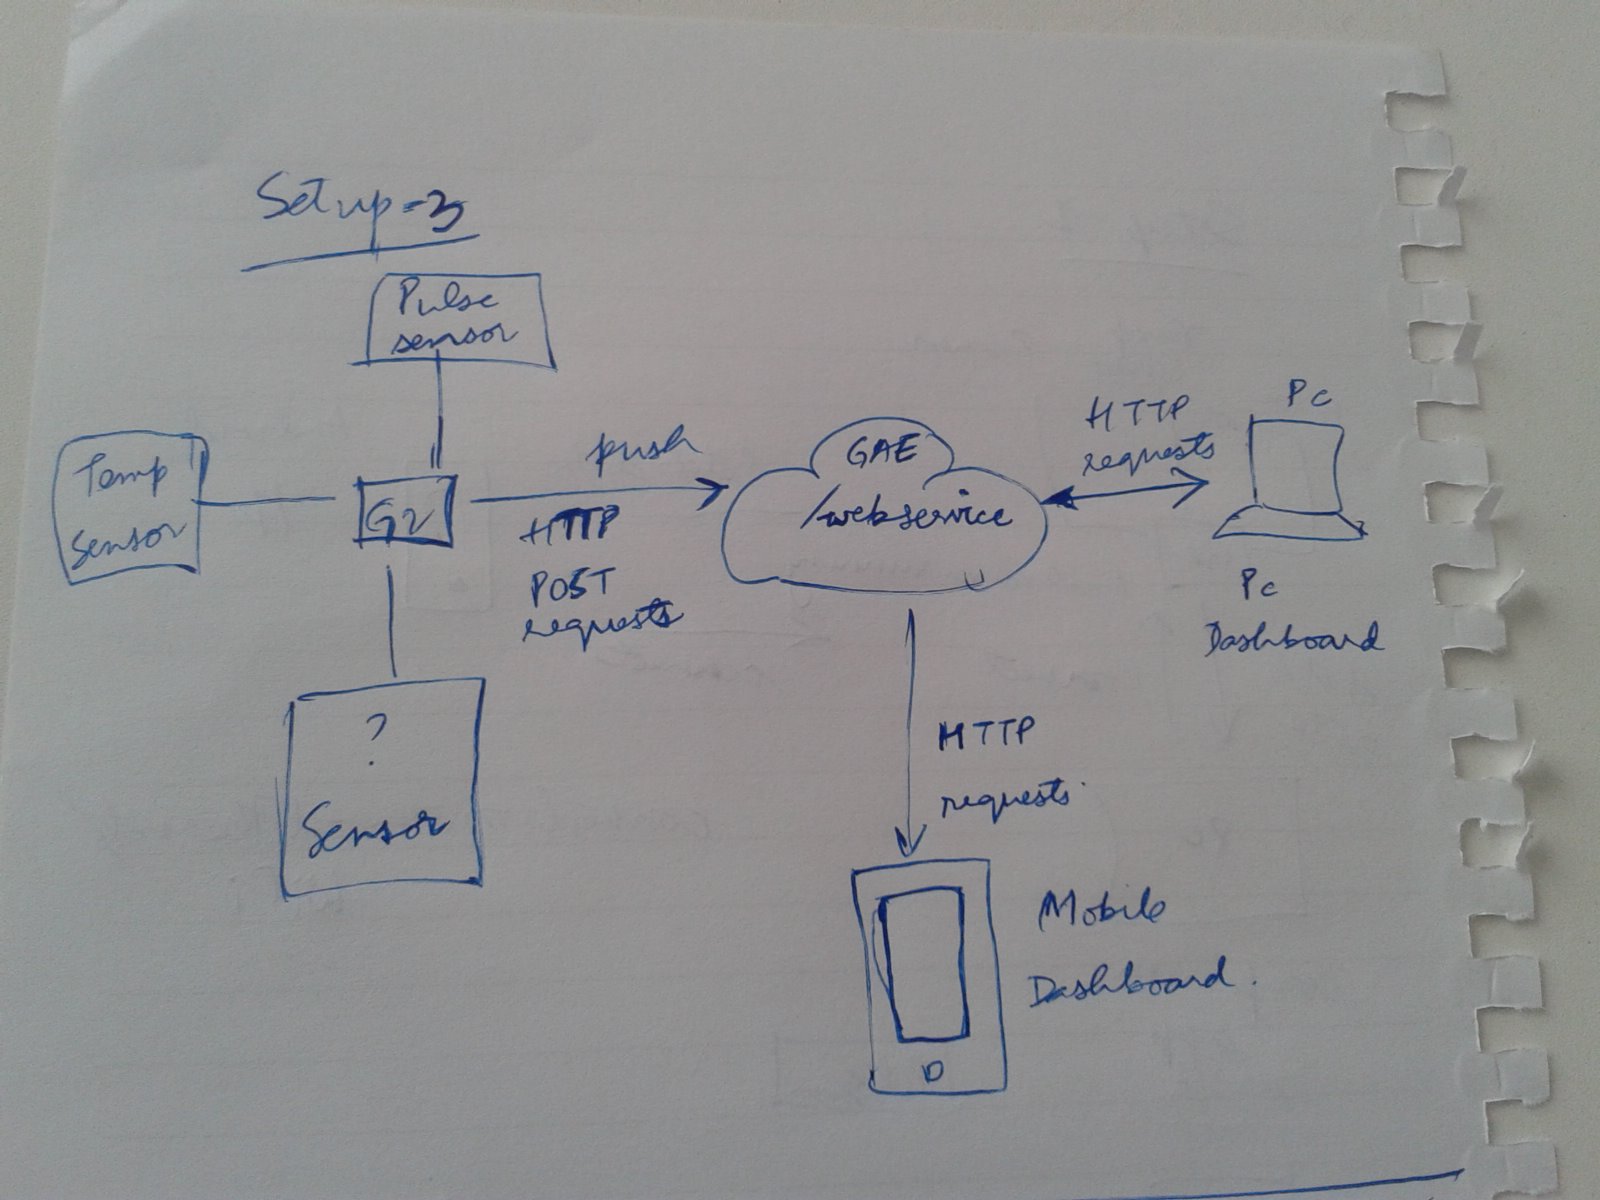 Setup-3
Pulse
sensor
Temp
Sensor
G2
push
HTTP
POST
requests
GAE
/webservice
HTTP
requests
Pc
Pc
Dashboard
?
Sensor
HTTP
requests.
Mobile
Dashboard.